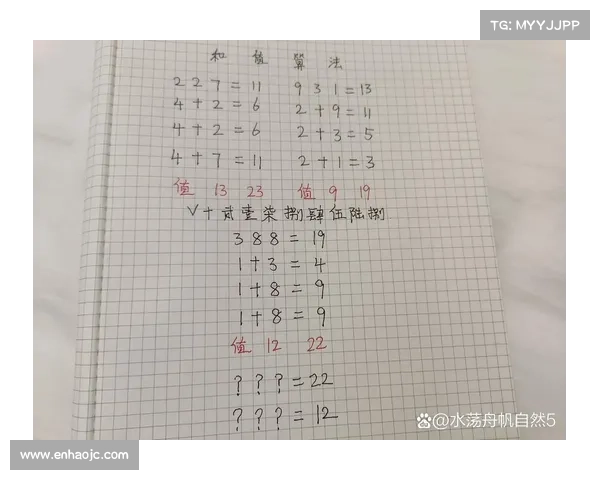 TG: MYYJJPP
和值算法
2 2 7 = 11 9 3 1 = 13
4 + 2 = 6 2 + 9 = 11
4 + 2 = 6 2 + 3 = 5
4 + 7 = 11 2 + 1 = 3
值 13 23 值 9 19
V十贰壹柒捌肆伍陆捌
3 8 8 = 19
1 + 3 = 4
1 + 8 = 9
1 + 8 = 9
值 12 22
? ? ? = 22
? ? ? = 12
@水荡舟帆自然5
www.enhaojc.com